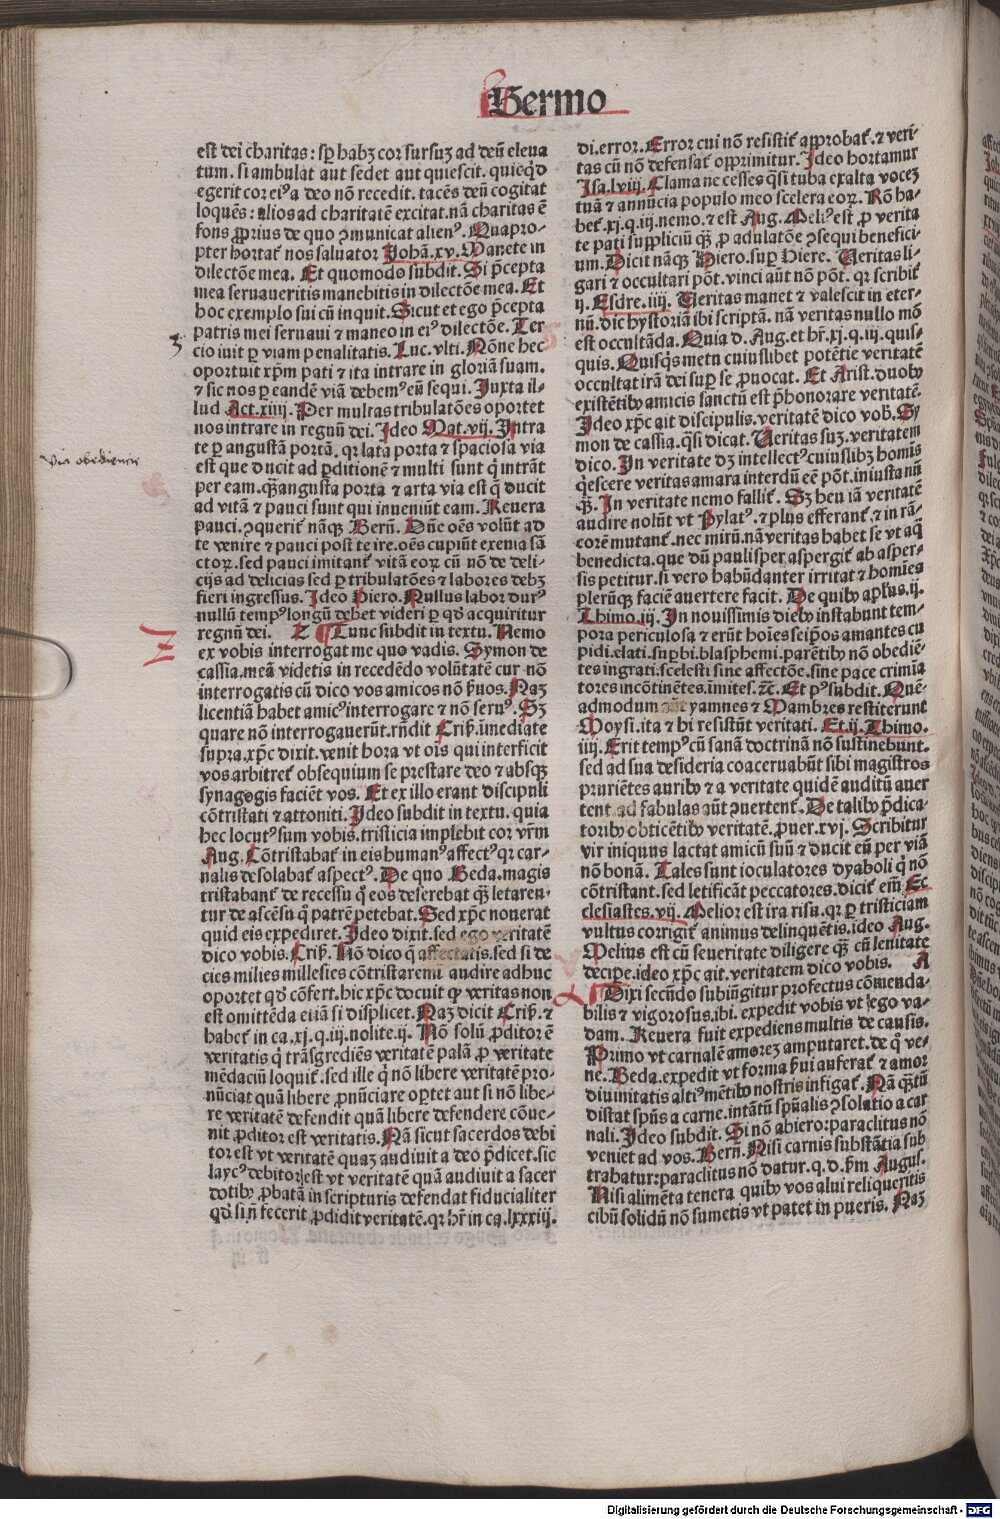 Sermo
est dei charitas: sꝑ habꝫ cor sursuꝫ ad deū eleua
tum. si ambulat aut sedet aut quiescit. quicq̄d
egerit cor eiꝰ a deo nō recedit. tacēs deū cogitat
loquēs: alios ad charitatē excitat. nā charitas ē
fons ꝓprius de quo ꝯmunicat alienꝰ. Quapro-
pter hortat᷑ nos saluator Johā. xv. Manete in
dilectōe mea. Et quomodo subdit. Si p̄cepta
mea seruaueritis manebitis in dilectōe mea. Et
hoc exemplo sui cū inquit. Sicut et ego p̄cepta
patris mei seruaui et maneo in eiꝰ dilectōe. Ter
3
cio iuit ꝑ viam penalitatis. Luc. vlti. Nōne hec
oportuit xp̄m pati et ita intrare in gloriā suam.
et sic nos ꝑ eandē viā debemꝰ eū sequi. Juxta il-
lud Act. xiiij. Per multas tribulatōes oportet
nos intrare in regnū dei. Ideo Mat. vij. Intra
te ꝑ angustā portā. qꝛ lata porta et spaciosa via
via obediencie
est que ducit ad ꝑditionē et multi sunt q̇ intrāt
per eam. q̄ꝫ angusta porta et arta via est q̄ ducit
ad vitā et pauci sunt qui inueniūt eam. Reuera
pauci. ꝯquerit᷑ nāqꝫ Bern̄. Dn̄e oēs volūt ad
te venire et pauci post te ire. oēs cupiūt exenia sā
ctoꝝ. sed pauci imitant᷑ vitā eoꝝ cū nō de deli-
cijs ad delicias sed ꝑ tribulatōes et labores debꝫ
fieri ingressus. Ideo Hiero. Nullus labor durꝰ
nullū tempꝰ longū debet videri ꝑ qđ acquiritur
regnū dei. Z ¶ Tunc subdit in textu. Nemo
Z
ex vobis interrogat me quo vadis. Symon de
cassia. meā videtis in recedēdo volūtatē cur nō
interrogatis cū dico vos amicos nō ẜuos. Naꝫ
licentiā habet amicꝰ interrogare et nō seruꝰ. Sꝫ
quare nō interrogauerūt. rn̄dit Criẜ. īmediate
supra. xp̄c dixit. venit hora vt oīs qui interficit
vos arbitret᷑ obsequium se prestare deo et absqꝫ
synagogis faciēt vos. Et ex illo erant discipuli
cōtristati et attoniti. Ideo subdit in textu. quia
hec locutꝰ sum vobis. tristicia implebit cor vr̄m
Aug. Cōtristabat᷑ in eis humanꝰ affectꝰ qꝛ car-
nalis desolabat᷑ aspectꝰ. De quo Beda. magis
tristabant᷑ de recessu q̇ eos deserebat q̄ꝫ letaren-
tur de ascēsu q̇ patrē petebat. Sed xp̄c nouerat
quid eis expediret. Ideo dixit. sed ego veritatē
dico vobis. Criẜ. Nō dico q̄ affectatis. sed si de
cies milies millesies cōtristaremi audire adhuc
oportet qđ cōfert. hic xp̄c docuit ꝙ veritas non
est omittēda etiā si displicet. Naꝫ dicit Criẜ. et
habet᷑ in ca. xj. q. iij. nolite. ij. Nō solū ꝓditor ē
veritatis q̇ trāsgrediēs veritatē palā ꝓ veritate
mēdaciū loquit᷑. sed ille q̇ nō libere veritatē pro-
nūciat quā libere ꝓnūciare oportet aut si nō libe-
re veritatē defendit quā libere defendere cōue-
nit ꝓditor est veritatis. Nā sicut sacerdos debi
tor est vt veritatē quaꝫ audiuit a deo p̄dicet. sic
laycꝰ debitor est vt veritatē quā audiuit a sacer
dotibꝰ ꝓbatā in scripturis defendat fiducialiter
Qđ si nō fecerit ꝓdidit veritatē. qꝛ hr̄ in ca. lxxxiij.
di. error. Error cui nō resistit᷑ approbat᷑. et veri-
tas cū nō defensat᷑ opprimitur. Ideo hortamur
Isa. lviij. Clama ne cesses q̄si tuba exalta voceꝫ
tuā et annūcia populo meo scelera eoꝝ. Rō ha-
bet᷑. xj. q. iij. nemo. et est Aug. Meliꝰ est ꝓ verita
te pati suppliciū q̄ꝫ ꝓ adulatōe ꝯsequi benefici-
um. Dicit nāqꝫ Hiero. suꝑ Hiere. Veritas li-
gari et occultari pōt. vinci aūt nō pōt. qꝛ scribit᷑
ij. Esdre. iiij. Veritas manet et valescit in eter-
nū. dic hystoriā ibi scriptā. nā veritas nullo mō
est occultāda. Quia d. Aug. et hr̄. xj. q. iij. quis-
quis. Quisqꝫ metu cuiuslibet potētie veritatē
occultat irā dei suꝑ se ꝓuocat. Et Arist. duobꝰ
existētibꝰ amicis sanctū est p̄honorare veritatē.
Ideo xp̄c ait discipulis. veritatē dico vob̄. Sy
mon de cassia. q̄si dicat. Veritas suꝫ. veritatem
dico. In veritate dꝫ intellectꝰ cuiuslibꝫ homīs
q̇escere veritas amara interdū eē pōt. iniusta nū
q̄ꝫ. In veritate nemo fallit᷑. Sꝫ heu iā veritatē
audire nolūt vt Pylatꝰ. et plus efferant᷑ et in rā-
corē mutant᷑. nec mirū. nā veritas habet se vt aq̄
benedicta. que dū paulisper aspergit᷑ ab asper-
sis petitur. si vero habūdanter irritat et homīes
plerūqꝫ faciē auertere facit. De quibꝰ apl̄us. ij.
Thimo. iij. In nouissimis diebꝰ instabunt tem-
pora periculosa et erūt hoīes seip̄os amantes cu
pidi. elati. suꝑbi. blasphemi. parētibꝰ nō obediē-
tes ingrati. scelesti sine affectōe. sine pace crimīa
tores incōtinētes. īmites. ⁊c̄. Et pꝰ subdit. Quē-
admodum aūt yamnes et Mambres restiterunt
Moysi. ita et hi resistūt veritati. Et. ij. Thimo.
iiij. Erit tempꝰ cū sanā doctrinā nō sustinebunt.
sed ad sua desideria coaceruabūt sibi magistros
pruriētes auribꝰ et a veritate quidē auditū auer
tent. ad fabulas aūt ꝯuertent᷑. De talibꝰ p̄dica-
toribꝰ obticētibꝰ veritatē. ꝓuer. xvj. Scribitur
vir iniquus lactat amicū suū et ducit eū per viā
nō bonā. Tales sunt ioculatores dyaboli q̇ nō
cōtristant. sed letificāt peccatores. dicit em̄ Ec
clesiastes. vij. Melior est ira risu. qꝛ ꝑ tristiciam
vultus corrigit᷑ animus delinquētis. ideo Aug.
Melius est cū seueritate diligere q̄ꝫ cū lenitate
decipe. ideo xp̄c ait. veritatem dico vobis. A
¶ Dixi secūdo subiūgitur profectus cōmenda-
bilis et vigorosus. ibi. expedit vobis vt ego va-
dam. Reuera fuit expediens multis de causis.
Primo vt carnalē amoreꝫ amputaret. de q̇ ve-
ne. Beda. expedit vt forma ẜui auferat᷑ et amor
diuinitatis altiꝰ mētibꝰ nostris infigat᷑. Nā q̄ꝫtū
distat spūs a carne. intātū spūalis ꝯsolatio a car
nali. Ideo subdit. Si nō abiero: paraclitus nō
veniet ad vos. Bern̄. Nisi carnis substātia sub
trahatur: paraclitus nō datur. q. d. ẜm Augus.
Nisi alimēta tenera quibꝰ vos alui reliqueritis
cibū solidū nō sumetis vt patet in pueris. Naꝫ
Digitalisierung gefördert durch die Deutsche Forschungsgemeinschaft - DFG